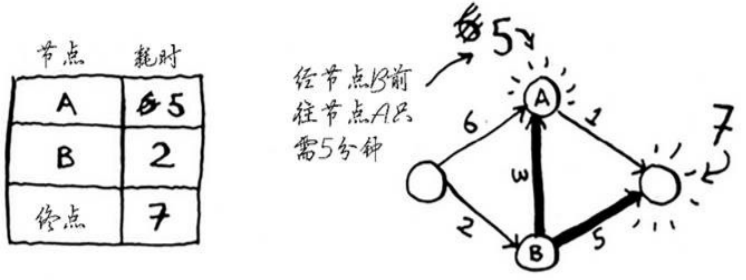 节点 耗时
A 6 5
B 2
终点 7
经节点B前
往节点A只
需5分钟
6 5
A
6
1
7
3
2
5
B